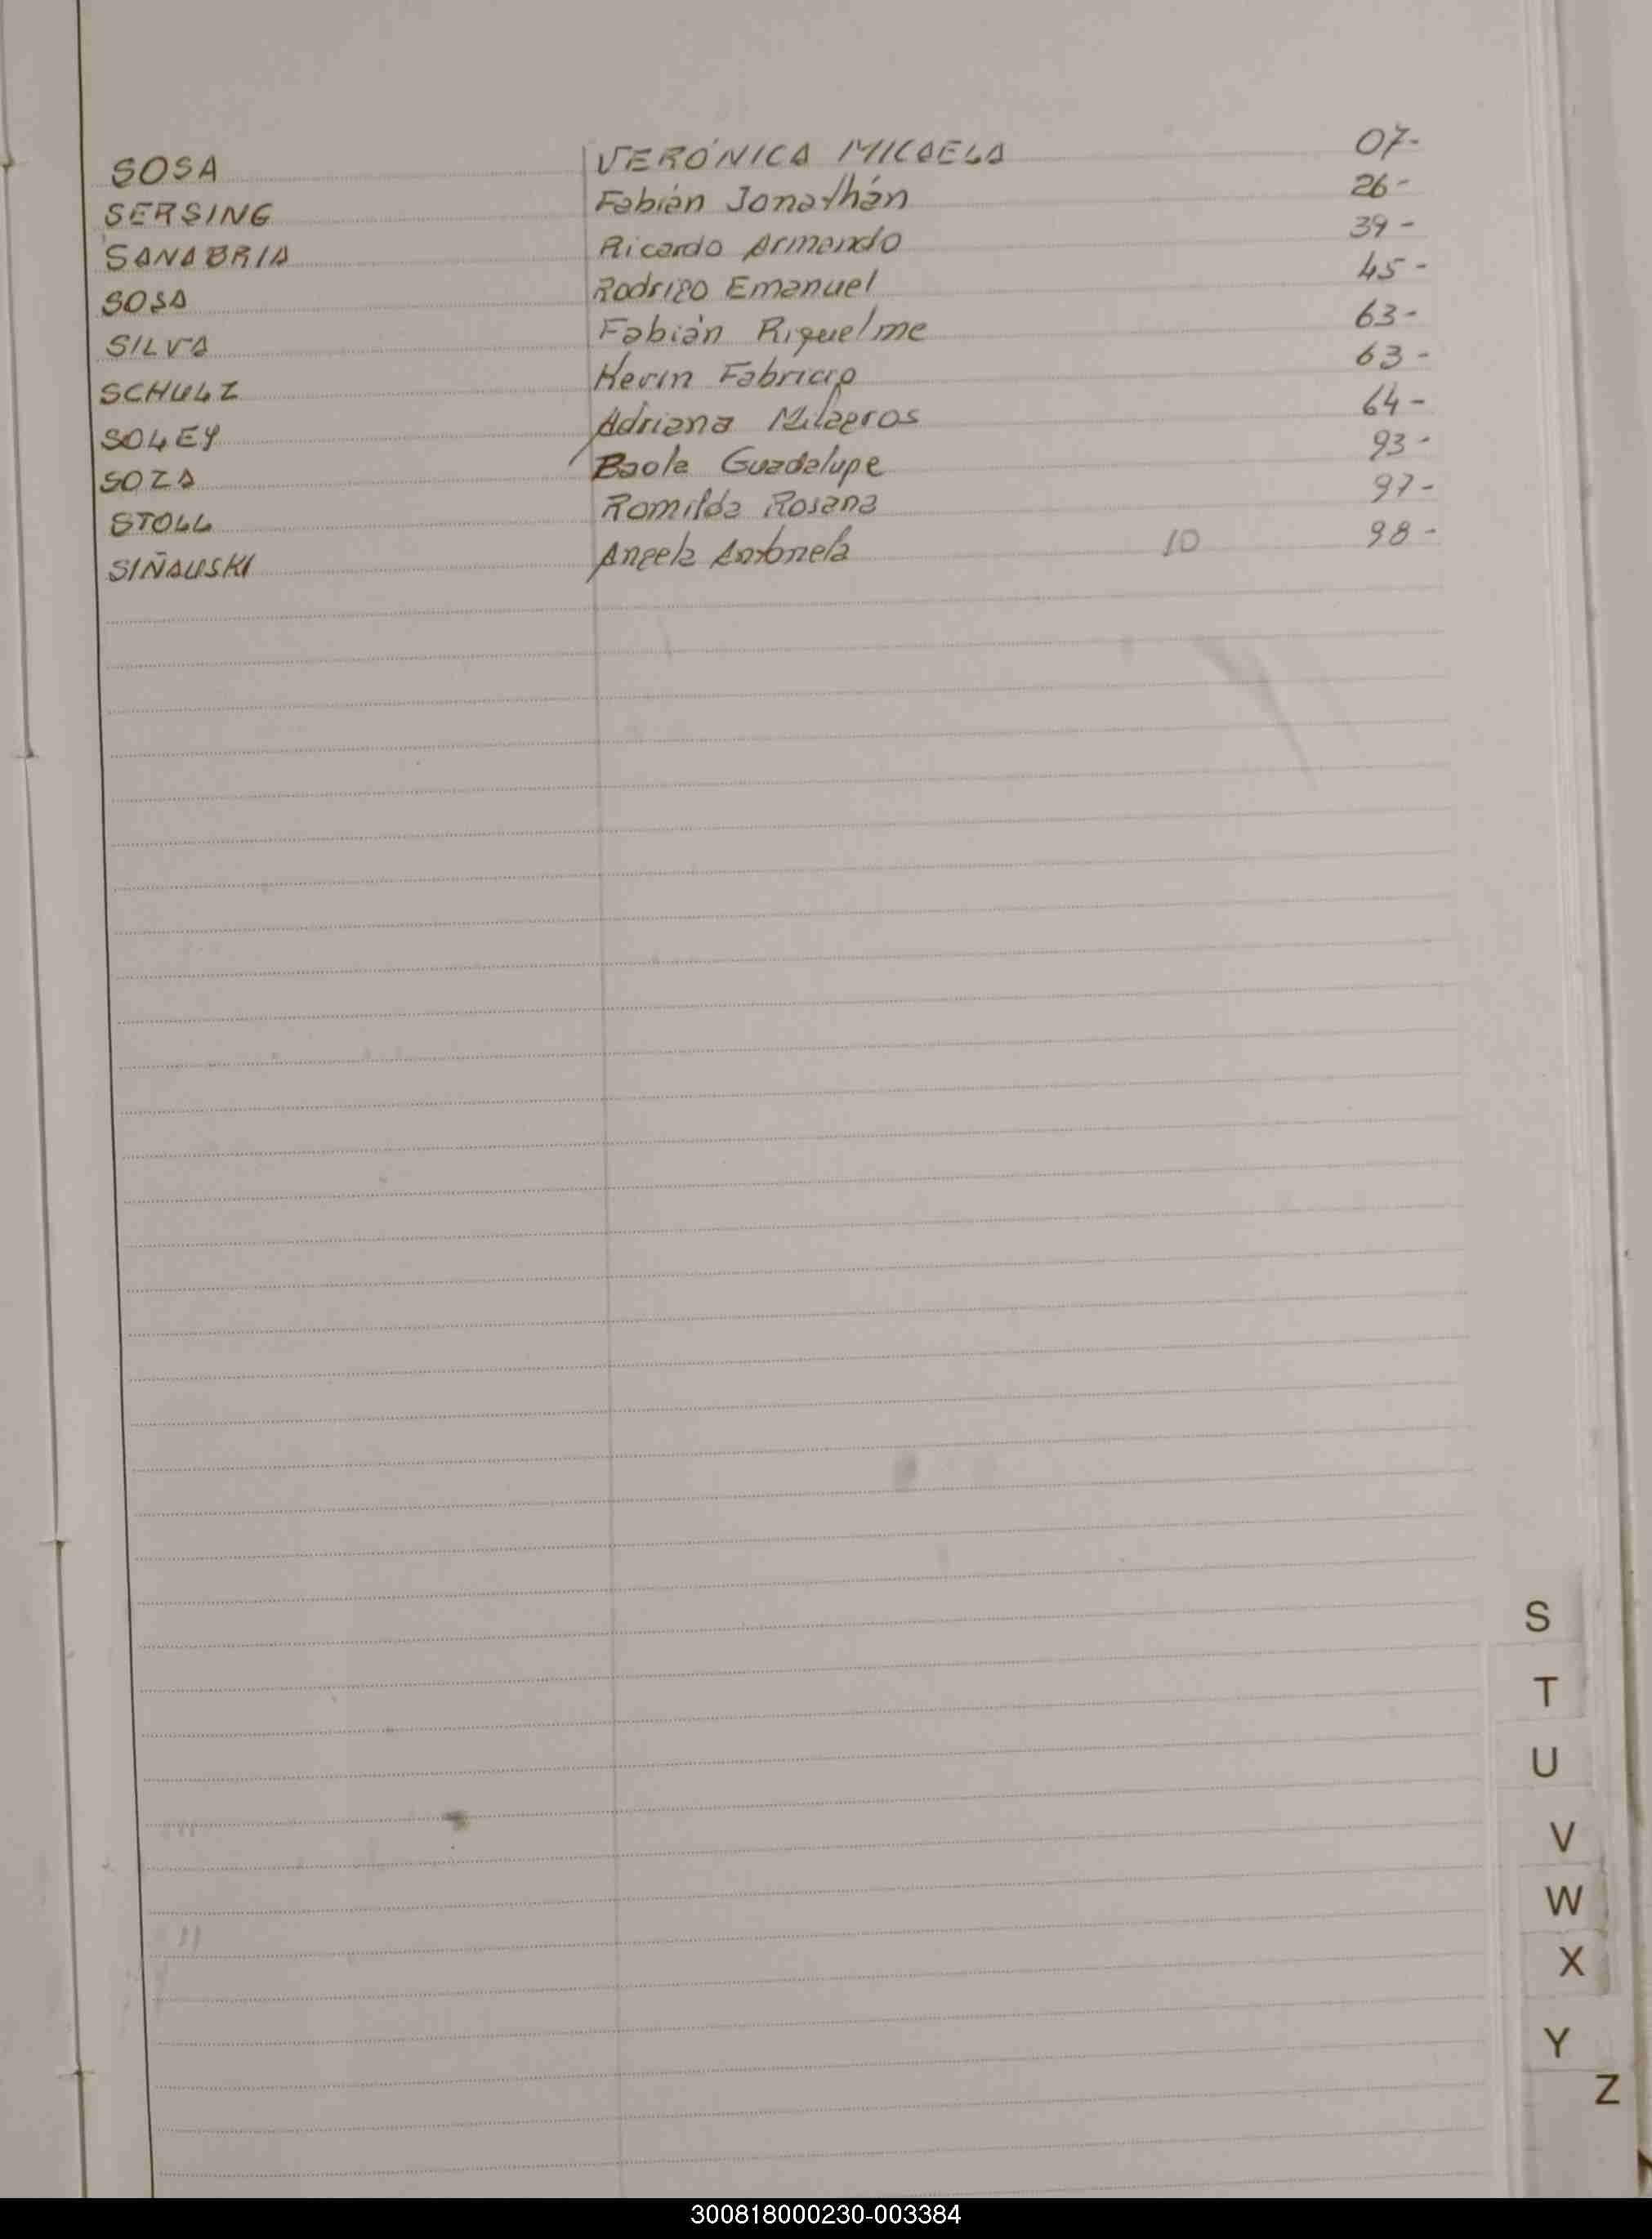 SOSA VERÓNICA MICAELA 07-
SERSING Fabián Jonathán 26-
SANABRIA Ricardo Armando 39-
SOSA Rodrigo Emanuel 45-
SILVA Fabián Riquelme 63-
SCHULZ Kevin Fabricio 63-
SOLEY Adriana Milagros 64-
SOZA Paola Guadalupe 93-
STOLL Romilda Rosana 97-
SIÑAUSKI Angela Antonela 10 98-
S
T
U
V
W
X
Y
Z
300818000230-003384